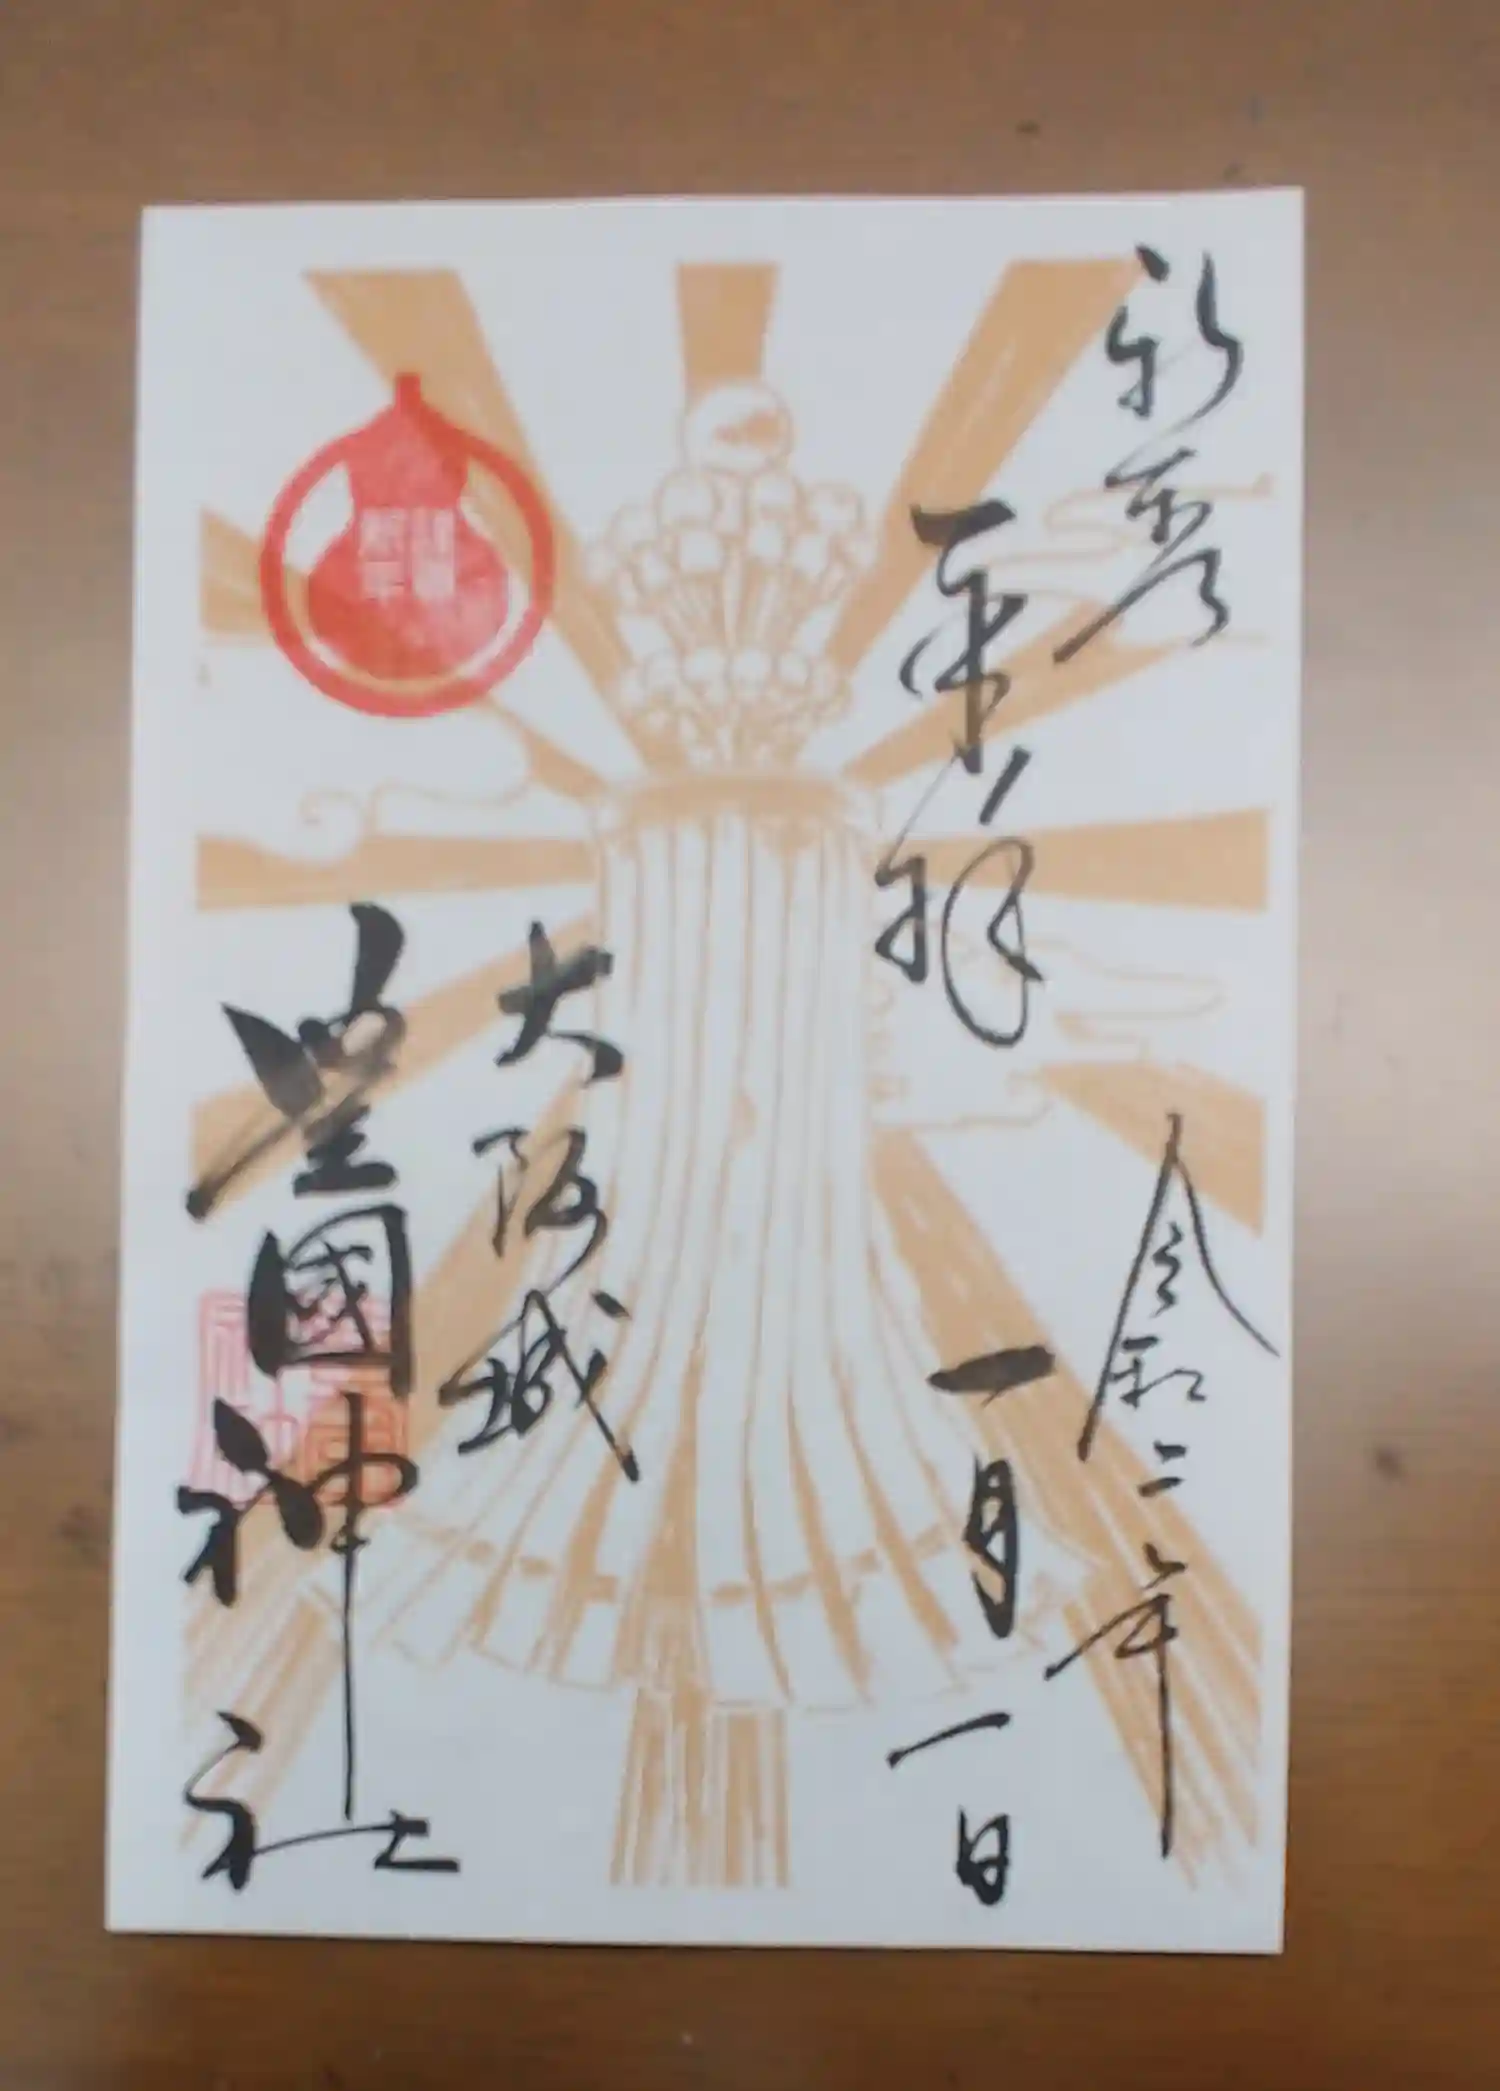 新春
奉拝
令和二年
一月一日
大阪城
豊國神社
謹賀
新年